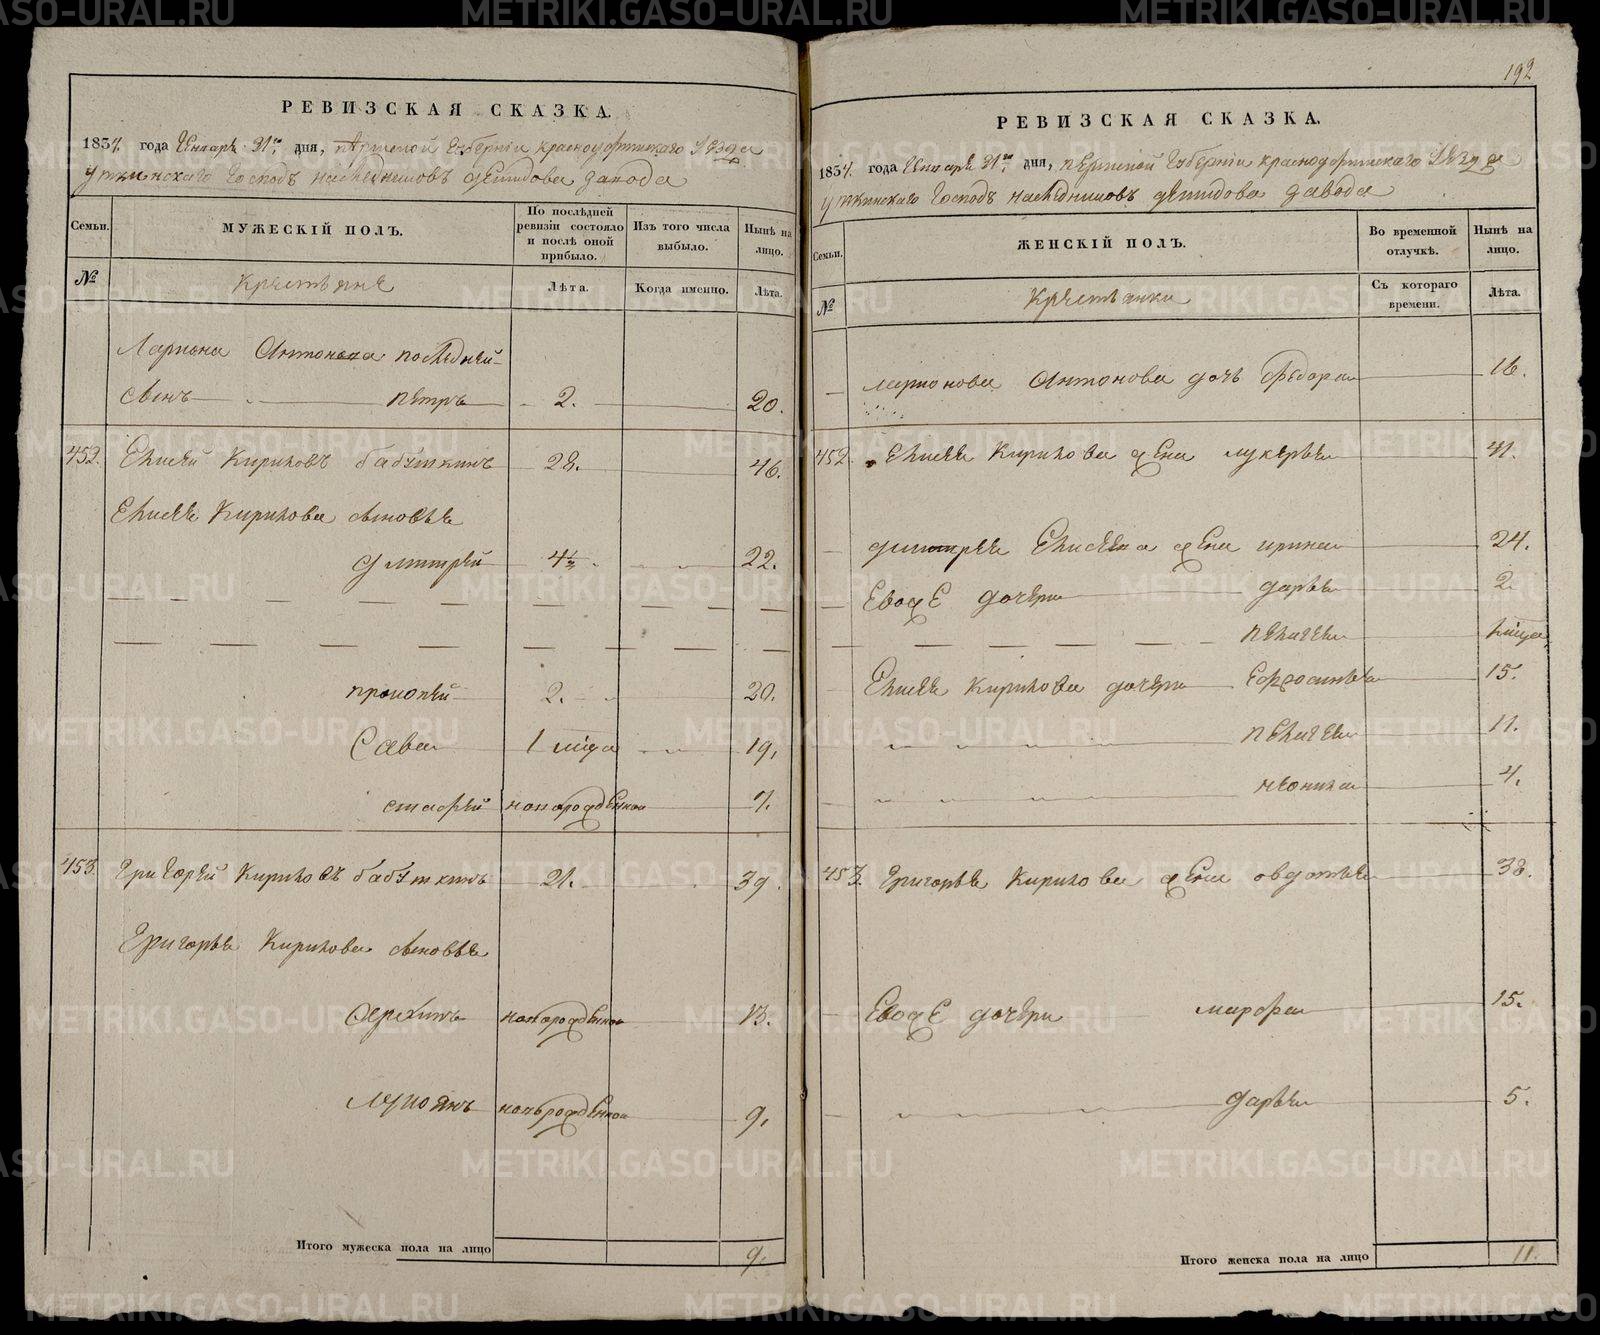 РЕВИЗСКАЯ СКАЗКА.
1834 года Генваря 31го дня, пермской губернiи красноуфимского уезда
уткинскаго господъ наследниковъ демидова завода
Семьи.
МУЖЕСКIЙ ПОЛЪ.
По послѣдней ревизiи состояло и послѣ оной прибыло.
Изъ того числа выбыло.
Нынѣ на лицо.
№
Крестьяне
Лѣта.
Когда именно.
Лѣта.
Лариона Антонова последней
сынъ петръ 2. 20.
452. Елисей Кириловъ бабушкинъ 28. 46.
Елисея Кирилова сыновья
дмитрей 4½ 22.
прокопей 2. 20.
Сава 1 мца 19.
новорожденной 7.
453. Григорей Кириловъ бабушкинъ 21. 39.
Григорья Кирилова сыновья
новорожденной 13.
Лукоянъ новорожденной 9.
Итого мужеска пола на лицо 9.
192
РЕВИЗСКАЯ СКАЗКА.
1834 года Генваря 31го дня, пермской губернiи красноуфимского уезда
уткинскаго господъ наследниковъ демидова завода
Семьи.
ЖЕНСКIЙ ПОЛЪ.
Во временной отлучкѣ.
Нынѣ на лицо.
№
Крестьянки
Съ котораго времени.
Лѣта.
Ларионова Антонова дочь Федора 16.
452. Елисея Кирилова жена лукерья 41.
дмитрея Елисеева жена ирина 24.
Евоже дочери дарья 2.
пелагея
Елисея Кирилова дочери Ефросинья 15.
пелагея 11.
неонила 4.
453. Григорья Кирилова жена овдотья 38.
Евоже дочери марфа 15.
дарья 5.
Итого женска пола на лицо 11.
METRIKI.GASO-URAL.RU